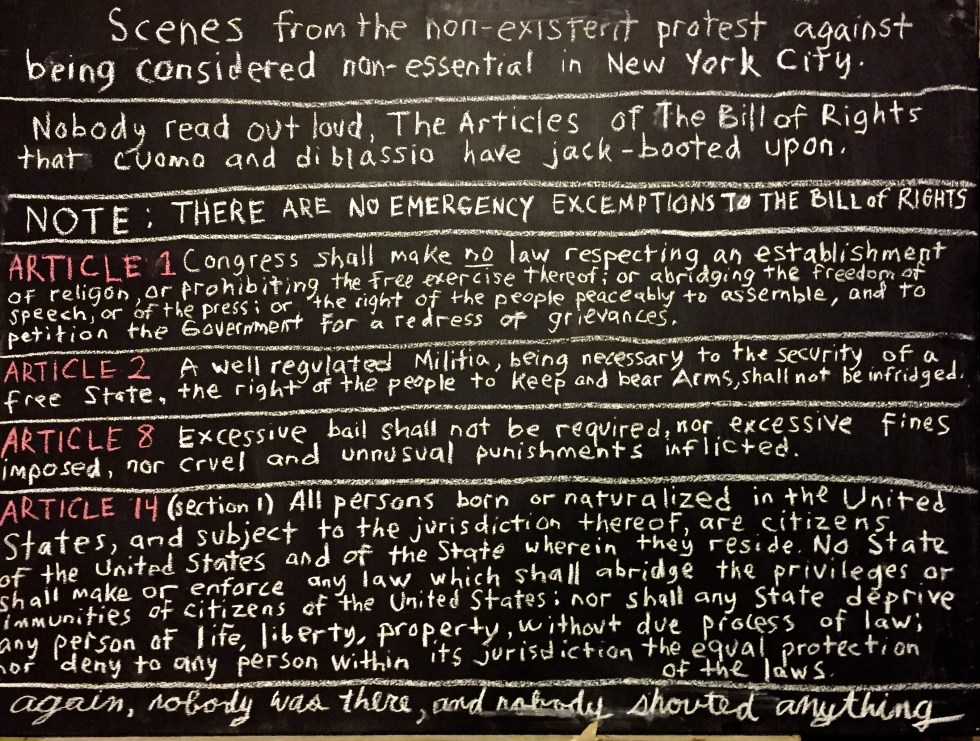 Scenes from the non-existent protest against
being considered non-essential in New York City.
Nobody read out loud, The Articles of The Bill of Rights
that Cuomo and diblassio have jack-booted upon.
NOTE: THERE ARE NO EMERGENCY EXCEMPTIONS TO THE BILL of RIGHTS
ARTICLE 1 Congress shall make no law respecting an establishment
of religon, or prohibiting the free exercise thereof; or abridging the freedom of
speech, or of the press; or the right of the people peaceably to assemble, and to
petition the Government for a redress of grievances.
ARTICLE 2 A well regulated Militia, being necessary to the security of a
free State, the right of the people to keep and bear Arms, shall not be infridged.
ARTICLE 8 Excessive bail shall not be required, nor excessive fines
imposed, nor cruel and unnusual punishments inflicted.
ARTICLE 14 (section 1) All persons born or naturalized in the United
States, and subject to the jurisdiction thereof, are citizens
of the United States and of the State wherein they reside. No State
shall make or enforce any law which shall abridge the privileges or
immunities of citizens of the United States; nor shall any State deprive
any person of life, liberty, property, without due process of law;
nor deny to any person within its jurisdiction the equal protection
of the laws.
again, nobody was there, and nobody shouted anything